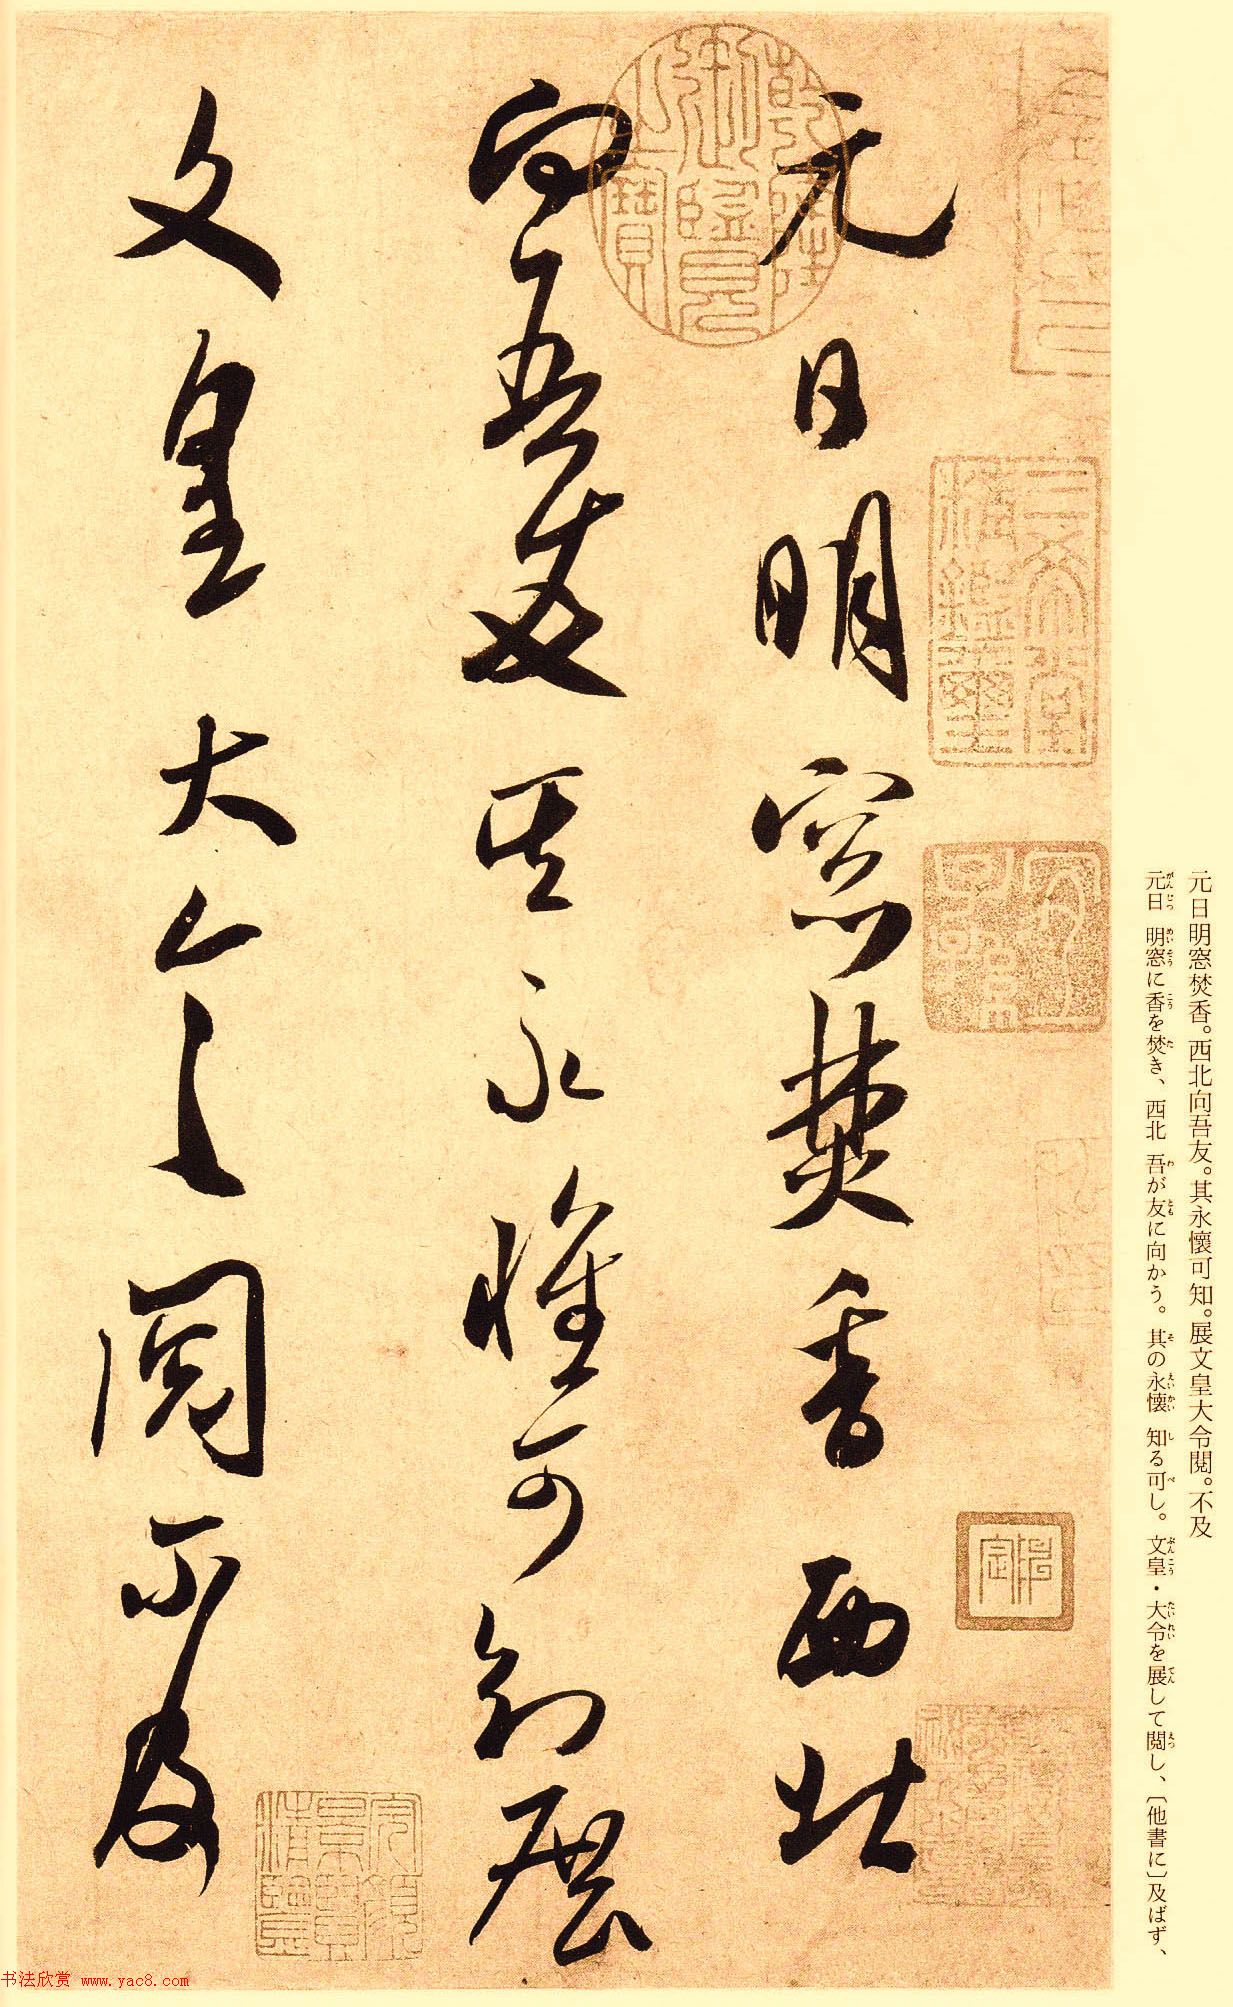 元日明窓焚香。西北向吾友。其永懷可知。展文皇大令閲。不及
元日 明窓に香を焚き、西北 吾が友に向かう。其の永懷 知る可し。文皇・大令を展して閲し、〔他書に〕及ばず、
元日明窓焚香西北
向吾友其永懷可知展
文皇大令閲不及
乾隆御覽之寶
三希堂精鑑璽
宜子孫
书法欣赏 www.yac8.com